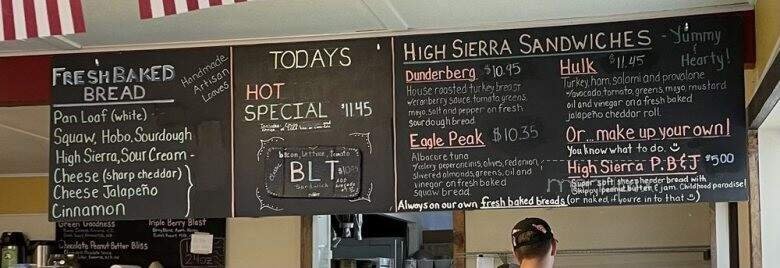 FRESH BAKED
BREAD
Handmade
Artisan
Loaves
Pan Loaf (white)
Squaw, Hobo, Sourdough
High Sierra, Sour Cream
Cheese (sharp cheddar)
Cheese Jalapeño
Cinnamon
TODAYS
HOT
SPECIAL $11.45
bacon, Lettuce, Tomato
BLT
Sandwich
HIGH SIERRA SANDWICHES
-Yummy
& Hearty!
Dunderberg $10.95
House roasted turkey breast
w/cranberry sauce, tomato, greens,
mayo, salt and pepper on fresh
sourdough bread.
Eagle Peak $10.35
Albacore tuna
w/celery, peperoncinis, olives, red onion,
slivered almonds, greens, oil and
vinegar on fresh baked
squaw bread
Hulk $11.45
Turkey, ham, salami and provolone
w/avocado, tomato, greens, mayo, mustard
oil and vinegar on a fresh baked
jalapeño cheddar roll.
Or... make up your own!
You know what to do.
High Sierra P.B & J $5.00
Super soft sheepherder bread with
Skippy peanut butter & jam. Childhood paradise!
Always on our own fresh baked breads (or naked, if you're in to that)
Green Goodness
Triple Berry Blast
Chocolate Peanut Butter Bliss
24oz